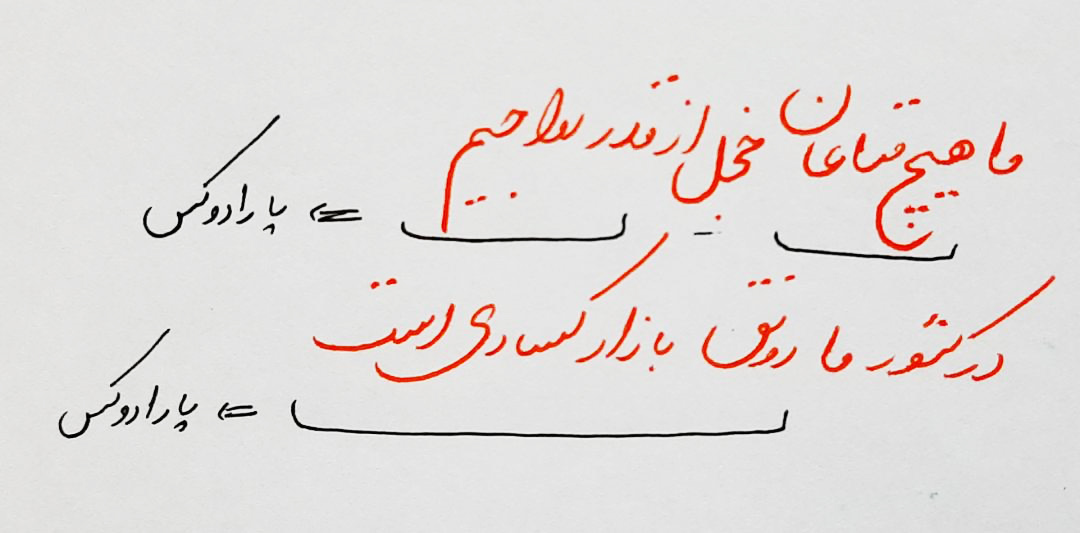 ما هیچ متاعان خجل از قدر رواجیم
= پارادوکس
در کشور ما رونق بازار کسادی است
= پارادوکس